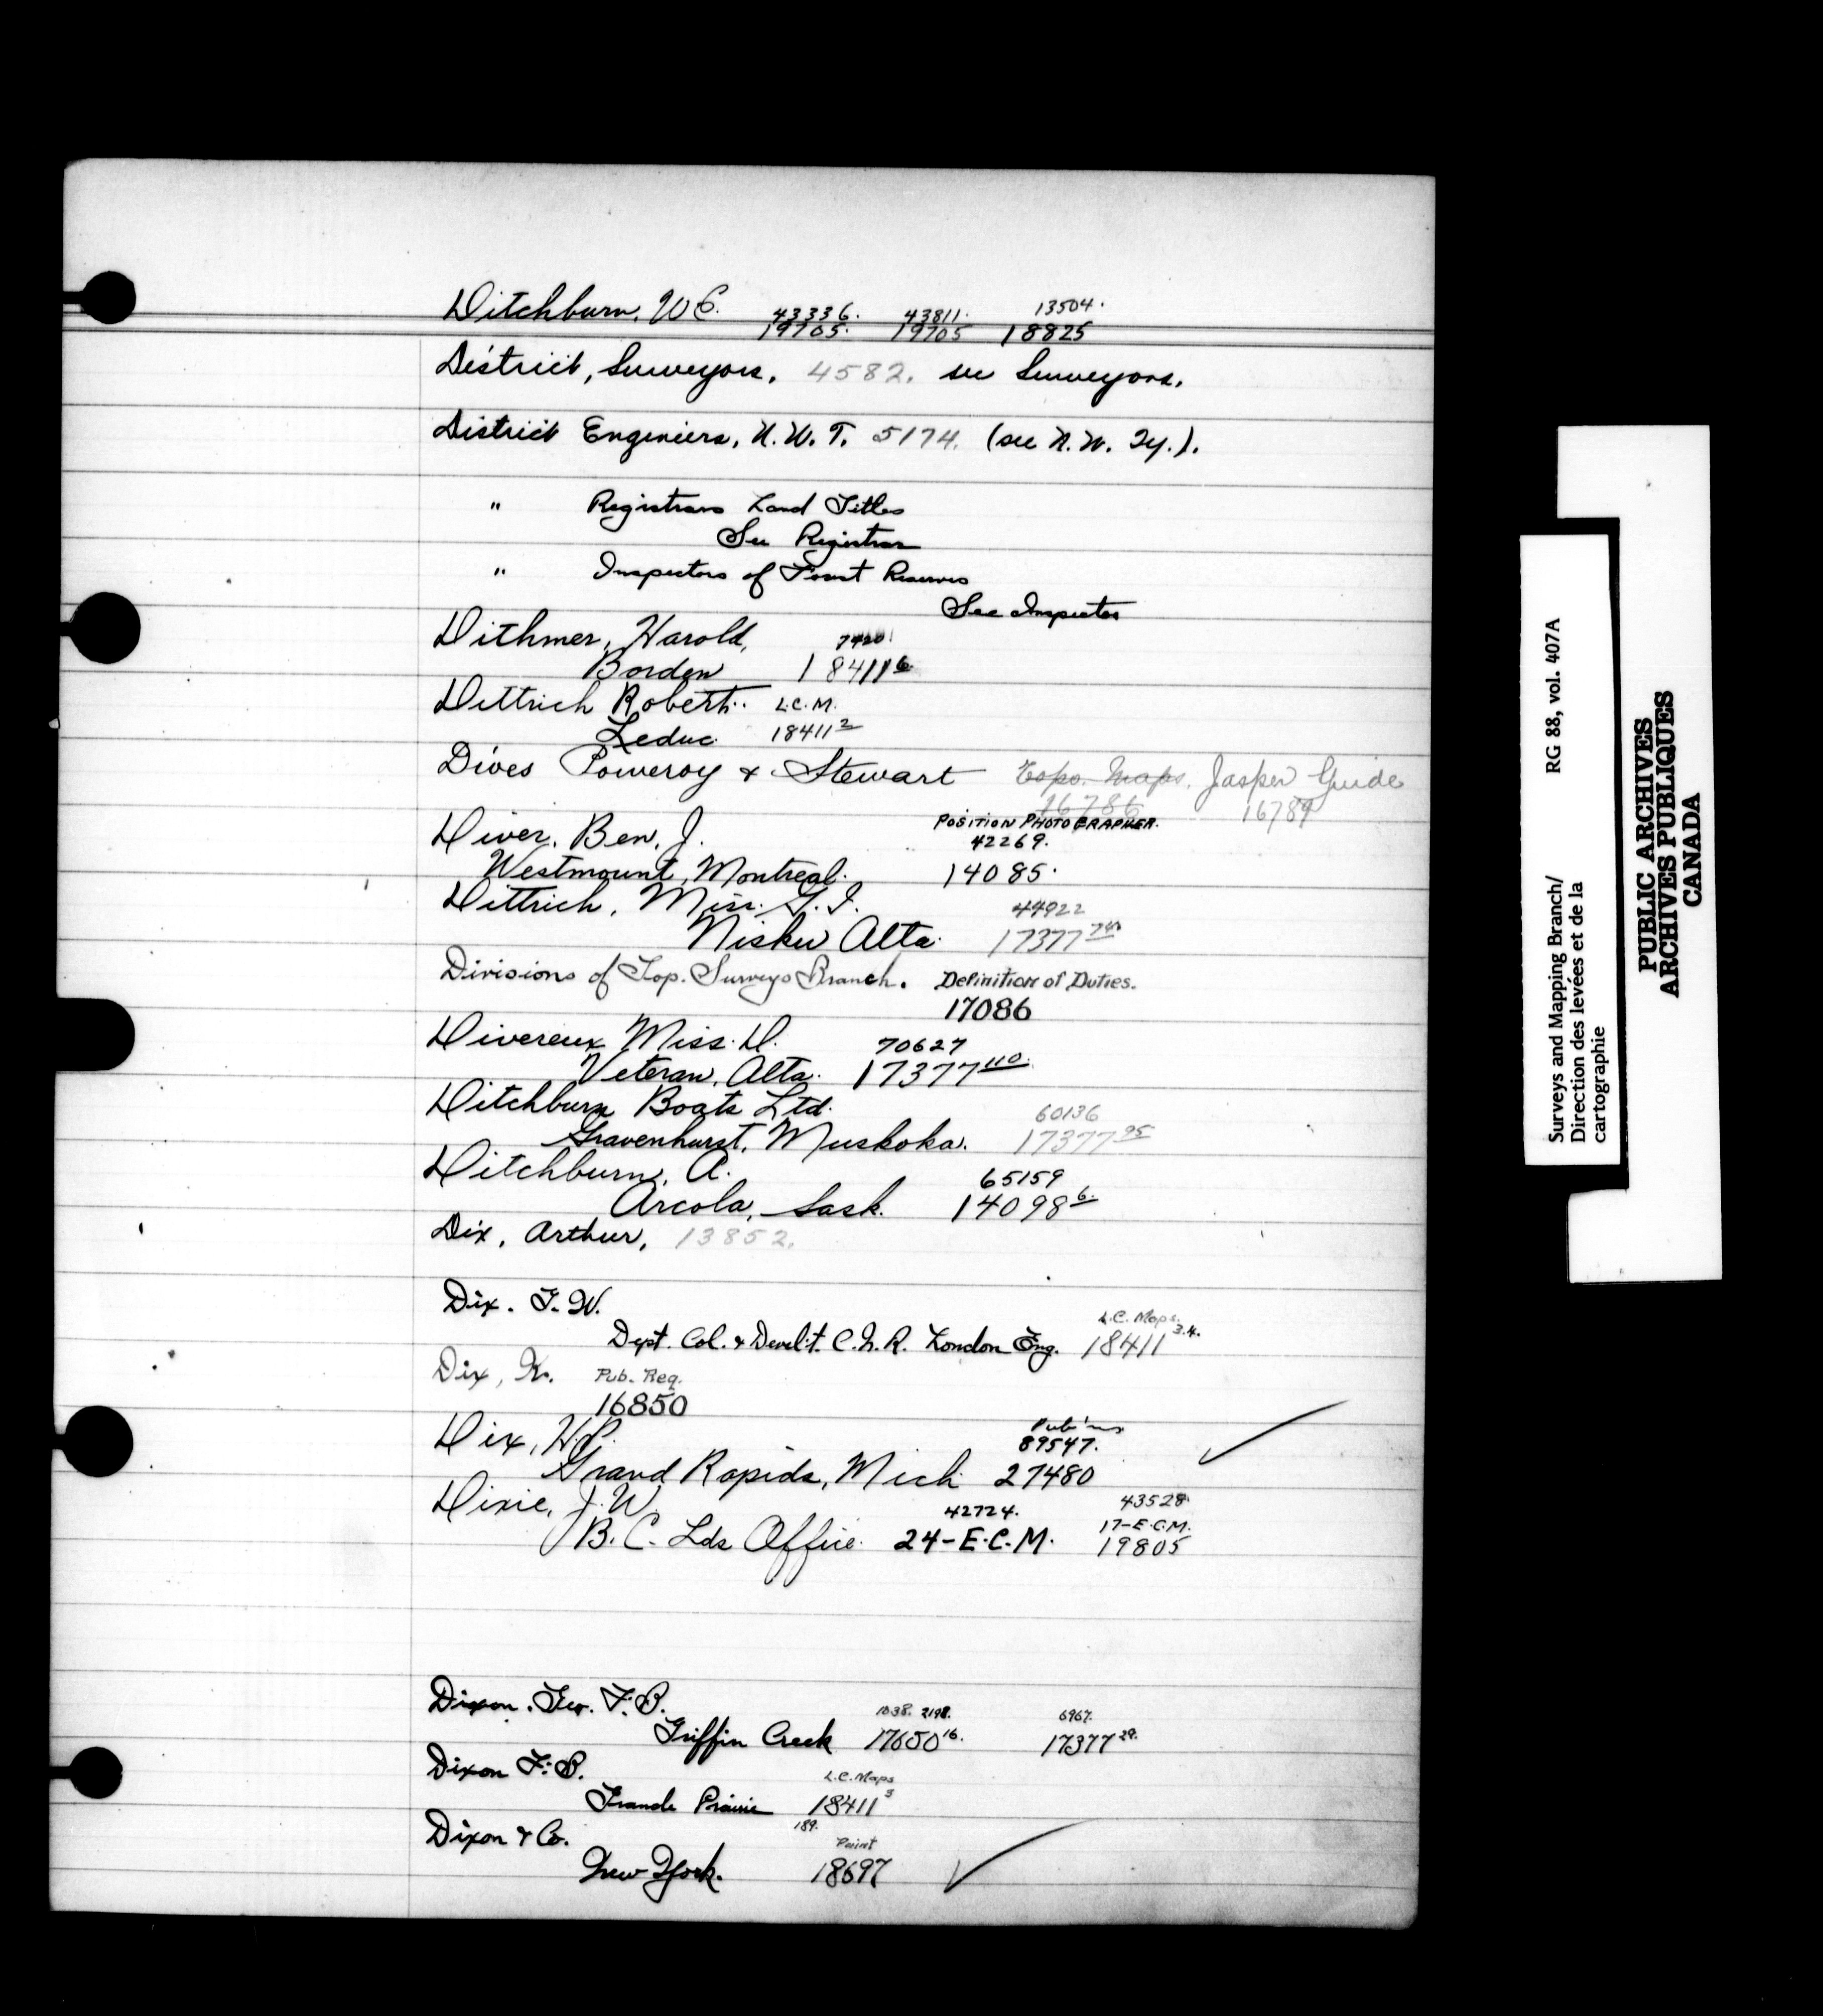 Ditchburn, W.E. 43336. 43811. 13504.
19705. 19705 18825
District, Surveyors. 4582. see Surveyors.
District Engeniers, N.W.T. 5174. (see N.W. Ty.).
" Registrars Land Titles
See Registrar
" Inspectors of Forest Reserves
See Inspector
Dithmer, Harold, 7420
Borden 18411 6.
Dittrich Robert. L.C.M.
Leduc. 18411 2
Dives Pomeroy & Stewart Topo. Maps. Jasper Guide
16786 16789
Diver, Ben, J. POSITION PHOTOGRAPHER.
42269.
Westmount, Montreal. 14085.
Dittrich, Miss. 44922
Nisku Alta. 17377 74
Divisions of Top. Surveys Branch. Definition of Duties.
17086
Divereux Miss. D. 70627
Veteran, Alta. 17377 110.
Ditchburn Boats Ltd. 60136
Gravenhurst, Muskoka. 17377 95
Ditchburn, A. 65159
Arcola, Sask. 14098 6.
Dix, Arthur, 13852.
Dix. F.W. L.C. Maps.
Dept. Col. & Devel't. C.N.R. London Eng. 18411 3.4.
Dix, K. Pub. Req.
16850
Dix, H.P. Pub'ns
89547.
Grand Rapids, Mich. 27480
Dixie, J.W. 42724. 43528
17-E.C.M.
B.C. Lds Office. 24-E.C.M. 19805
Dixon. Geo. F.B. 1038. 2198. 6967.
Griffin Creek 17650 16. 17377 29.
Dixon F.B. L.C. Maps
Grande Prairie 18411 3
Dixon & Co. 189. Paint
New York. 18697
Surveys and Mapping Branch/ RG 88, vol. 407A
Direction des levées et de la
cartographie
PUBLIC ARCHIVES
ARCHIVES PUBLIQUES
CANADA